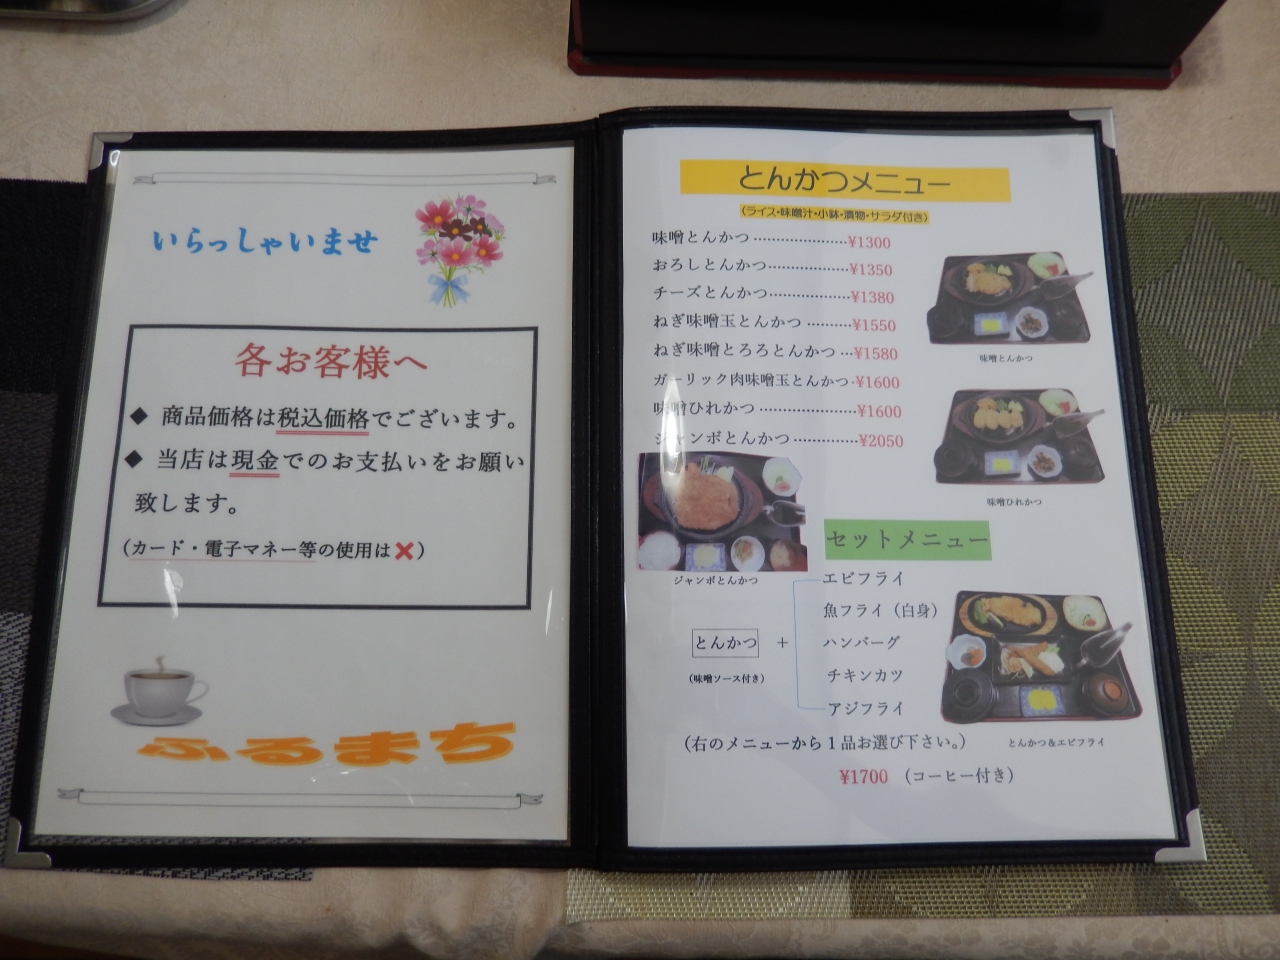 いらっしゃいませ
各お客様へ
◆ 商品価格は税込価格でございます。
◆ 当店は現金でのお支払いをお願い
致します。
（カード・電子マネー等の使用は❌）
ふるまち
とんかつメニュー
（ライス・味噌汁・小鉢・漬物・サラダ付き）
味噌とんかつ ·····················¥1300
おろしとんかつ··················¥1350
チーズとんかつ··················¥1380
ねぎ味噌玉とんかつ ··········¥1550
ねぎ味噌とろろとんかつ ···¥1580
ガーリック肉味噌玉とんかつ·¥1600
味噌ひれかつ ······················¥1600
ジャンボとんかつ ···············¥2050
味噌とんかつ
味噌ひれかつ
ジャンボとんかつ
セットメニュー
エビフライ
魚フライ（白身）
とんかつ ＋ ハンバーグ
（味噌ソース付き）
チキンカツ
アジフライ
（右のメニューから１品お選び下さい。）
とんかつ＆エビフライ
¥1700 （コーヒー付き）